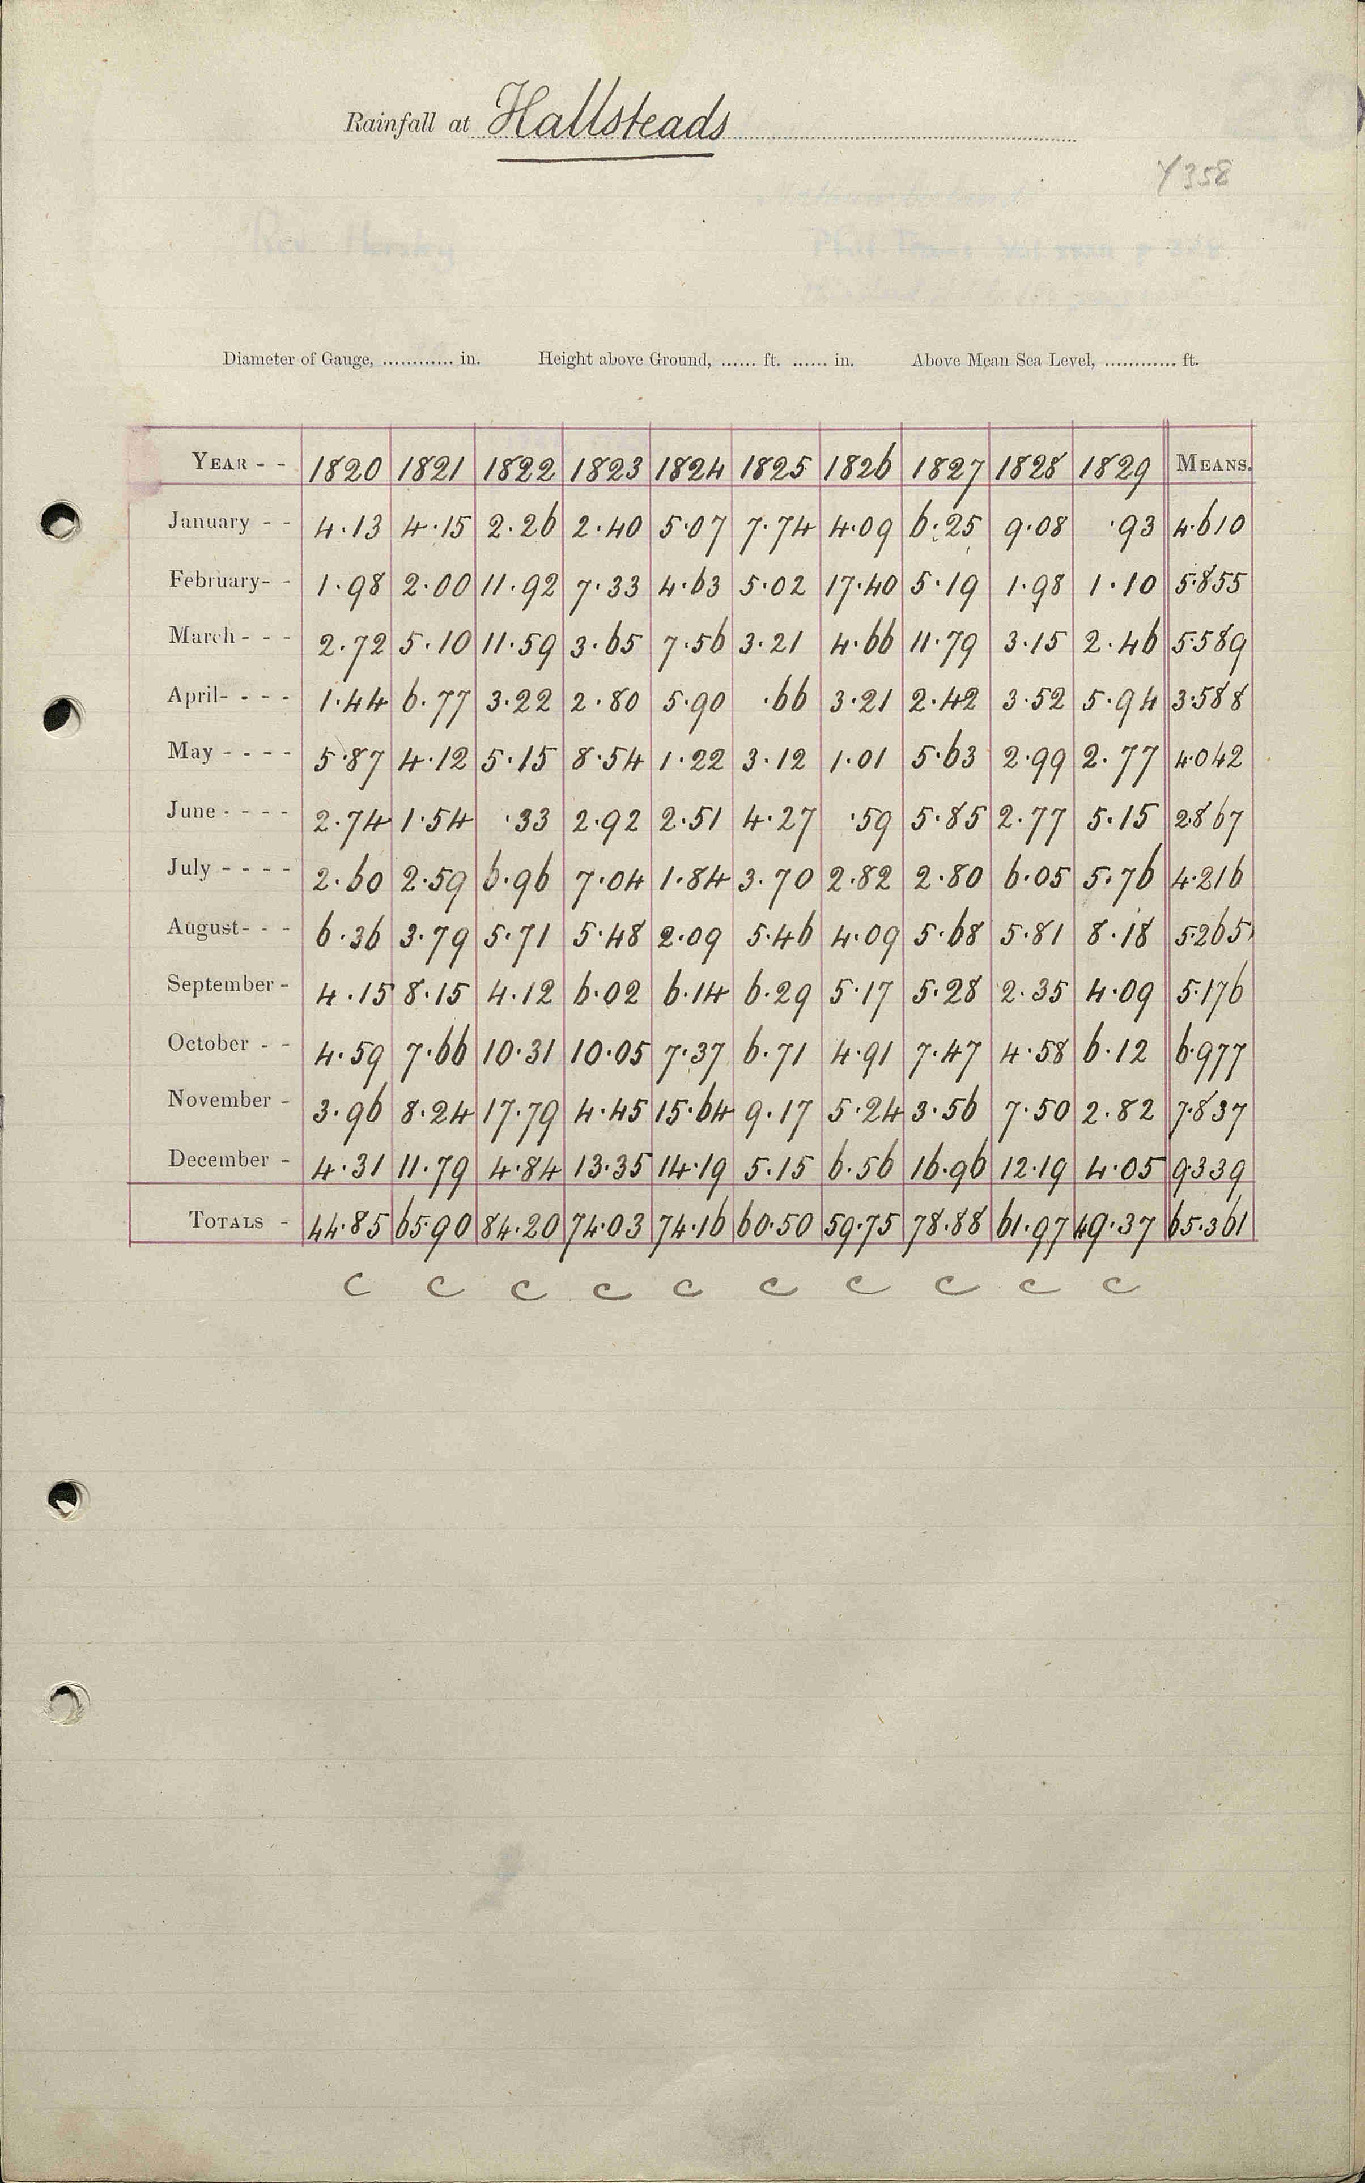 Rainfall at Hallsteads
Y358
Diameter of Gauge, ............ in. Height above Ground, ...... ft. ...... in. Above Mean Sea Level, ............ ft.
YEAR - - 1820 1821 1822 1823 1824 1825 1826 1827 1828 1829 MEANS.
January - - 4.13 4.15 2.26 2.40 5.07 7.74 4.09 6.25 9.08 .93 4.610
February- - 1.98 2.00 11.92 7.33 4.63 5.02 17.40 5.19 1.98 1.10 5.855
March - - - 2.72 5.10 11.59 3.65 7.56 3.21 4.66 11.79 3.15 2.46 5.589
April- - - - 1.44 6.77 3.22 2.80 5.90 .66 3.21 2.42 3.52 5.94 3.588
May - - - - 5.87 4.12 5.15 8.54 1.22 3.12 1.01 5.63 2.99 2.77 4.042
June - - - - 2.74 1.54 .33 2.92 2.51 4.27 .59 5.85 2.77 5.15 2.867
July - - - - 2.60 2.59 6.96 7.04 1.84 3.70 2.82 2.80 6.05 5.76 4.216
August- - - 6.36 3.79 5.71 5.48 2.09 5.46 4.09 5.68 5.81 8.18 5.265
September - 4.15 8.15 4.12 6.02 6.14 6.29 5.17 5.28 2.35 4.09 5.176
October - - 4.59 7.66 10.31 10.05 7.37 6.71 4.91 7.47 4.58 6.12 6.977
November - 3.96 8.24 17.79 4.45 15.64 9.17 5.24 3.56 7.50 2.82 7.837
December - 4.31 11.79 4.84 13.35 14.19 5.15 6.56 16.96 12.19 4.05 9.339
TOTALS - 44.85 65.90 84.20 74.03 74.16 60.50 59.75 78.88 61.97 49.37 65.361
C C C C C C C C C C